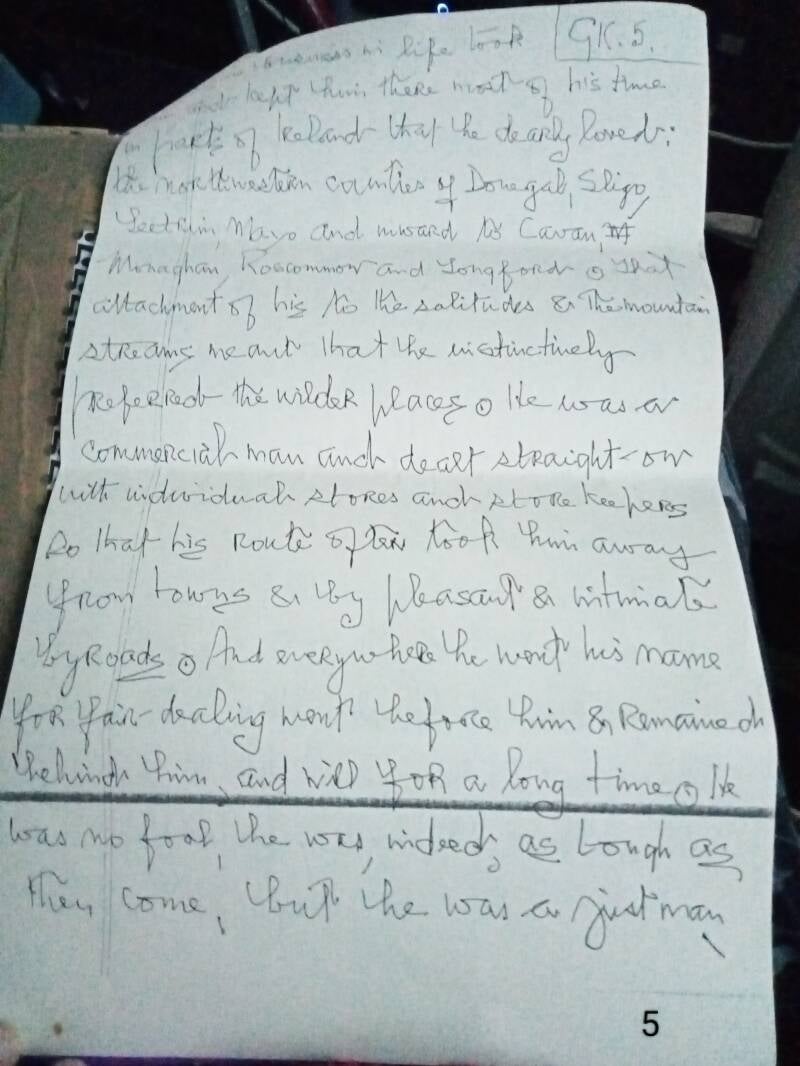 business in life took GK.5.
and kept him there most of his time
in parts of Ireland that he dearly loved:
the northwestern counties of Donegal, Sligo,
Leetrim, Mayo and inward to Cavan,
Monaghan, Roscommon and Longford. That
attachment of his to the solitudes & the mountain
streams meant that he instinctively
preferred the wilder places. He was a
commercial man and dealt straight-on
with individual stores and storekeepers
so that his route often took him away
from towns & by pleasant & intimate
byroads. And everywhere he went his name
for fair-dealing went before him & remained
behind him, and will for a long time. He
was no fool, he was, indeed, as tough as
they come, but he was a just man,
5